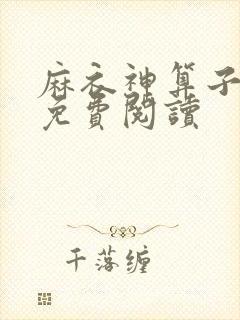 麻衣神算子
免費閱讀
千落缠